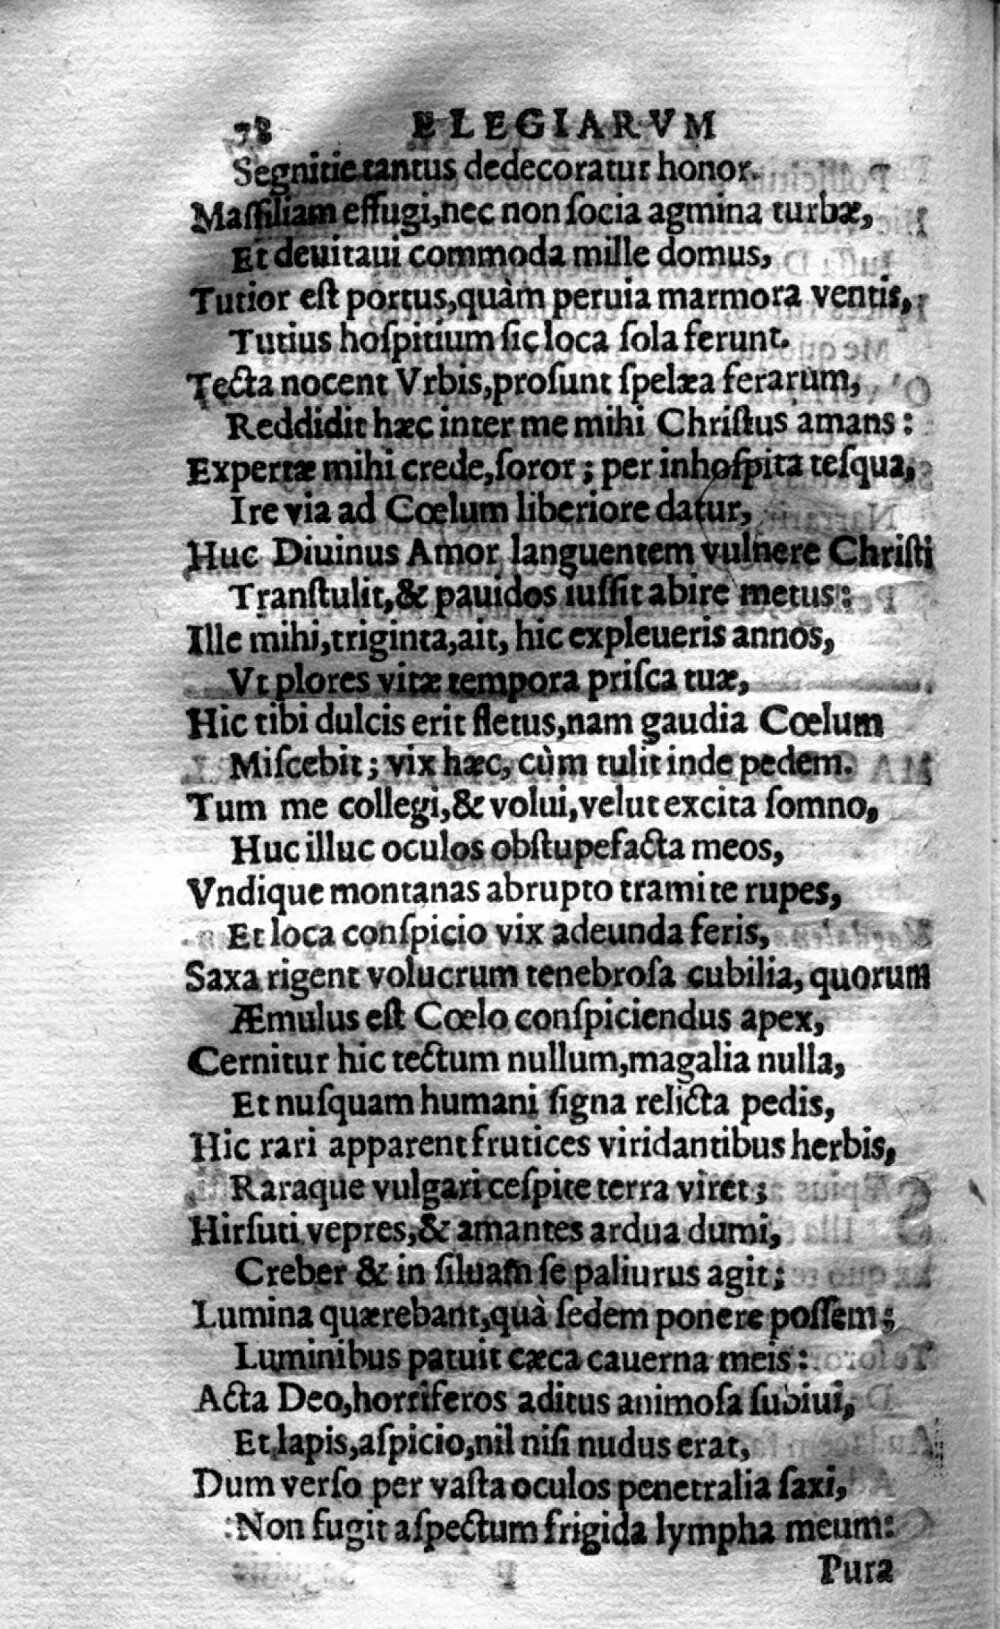 78 ELEGIARVM
Segnitie tantus dedecoratur honor.
Maſſiliam effugi, nec non ſocia agmina turbæ,
Et deuitaui commoda mille domus,
Tutior eſt portus, quàm peruia marmora ventis,
Tutius hoſpitium ſic loca ſola ferunt.
Tecta nocent Vrbis, proſunt ſpelæa ferarum,
Reddidit hæc inter me mihi Chriſtus amans:
Expertæ mihi crede, ſoror; per inhoſpita teſqua,
Ire via ad Cœlum liberiore datur,
Huc Diuinus Amor languentem vulnere Chriſti
Tranſtulit, & pauidos iuſſit abire metus:
Ille mihi, triginta, ait, hic expleueris annos,
Vt plores vitæ tempora priſca tuæ,
Hic tibi dulcis erit fletus, nam gaudia Cœlum
Miſcebit; vix hæc, cùm tulit inde pedem.
Tum me collegi, & volui, velut excita ſomno,
Huc illuc oculos obſtupefacta meos,
Vndique montanas abrupto tramite rupes,
Et loca conſpicio vix adeunda feris,
Saxa rigent volucrum tenebroſa cubilia, quorum
Æmulus eſt Cœlo conſpiciendus apex,
Cernitur hic tectum nullum, magalia nulla,
Et nuſquam humani ſigna relicta pedis,
Hic rari apparent frutices viridantibus herbis,
Raraque vulgari ceſpite terra viret;
Hirſuti vepres, & amantes ardua dumi,
Creber & in ſiluam ſe paliurus agit;
Lumina quærebant, quà ſedem ponere poſſem;
Luminibus patuit cæca cauerna meis:
Acta Deo, horriferos aditus animoſa ſubiui,
Et lapis, aſpicio, nil niſi nudus erat,
Dum verſo per vaſta oculos penetralia ſaxi,
Non fugit aſpectum frigida lympha meum:
Pura